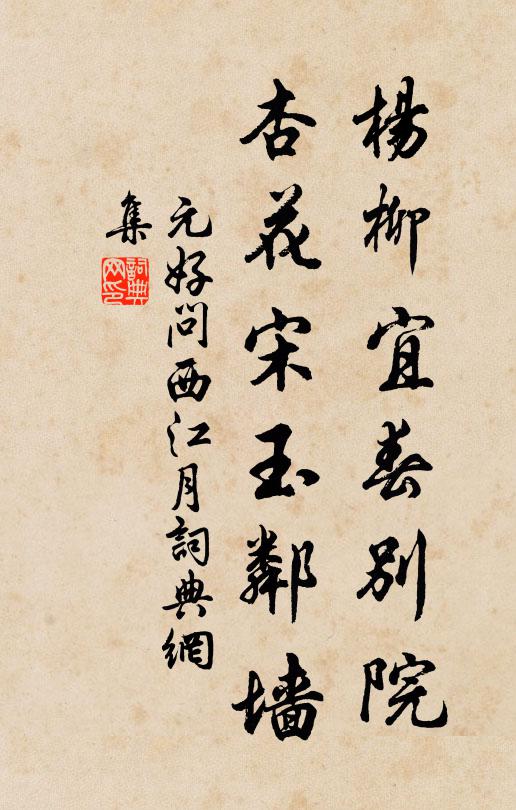 楊柳宜春別院
杏花宋玉鄰墻
元好問西江月詞典網
集
詞典
网印